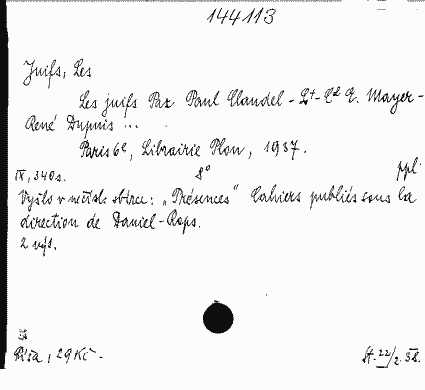 144113
Juifs, Les
Les juifs Par Paul Claudel - Lt-Cel E. Mayer-
René Dupuis ...
Paris 6e, Librairie Plon, 1937.
IX, 340 s. 8° ppl.
Vyšlo v měsíč. sbírce: „Présences" Cahiers publiés sous la
direction de Daniel-Rops.
2 výt.
Říša, 29 Kč.-
St. 22/2. 38.